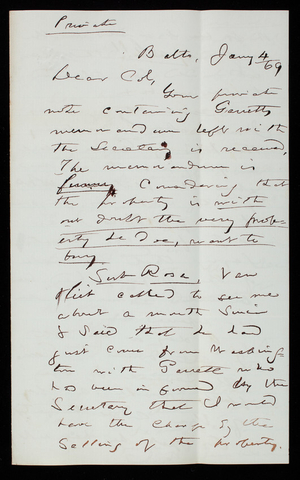 Private
Balto, Jany 4/69
Dear Col,
Your private
note containing Garretts
memorandum left with
the Secretary is received,
The memorandum is
funny, Considering that
the property is with
out doubt the very prop-
erty he Does, want to
buy
Sub Rosa, Van
Vliet called to see me
about a month Since
& Said that he had
just come from Washing-
ton with Garrett who
has been informed by the
Secretary that I would
have the Charge of the
Selling of the property.